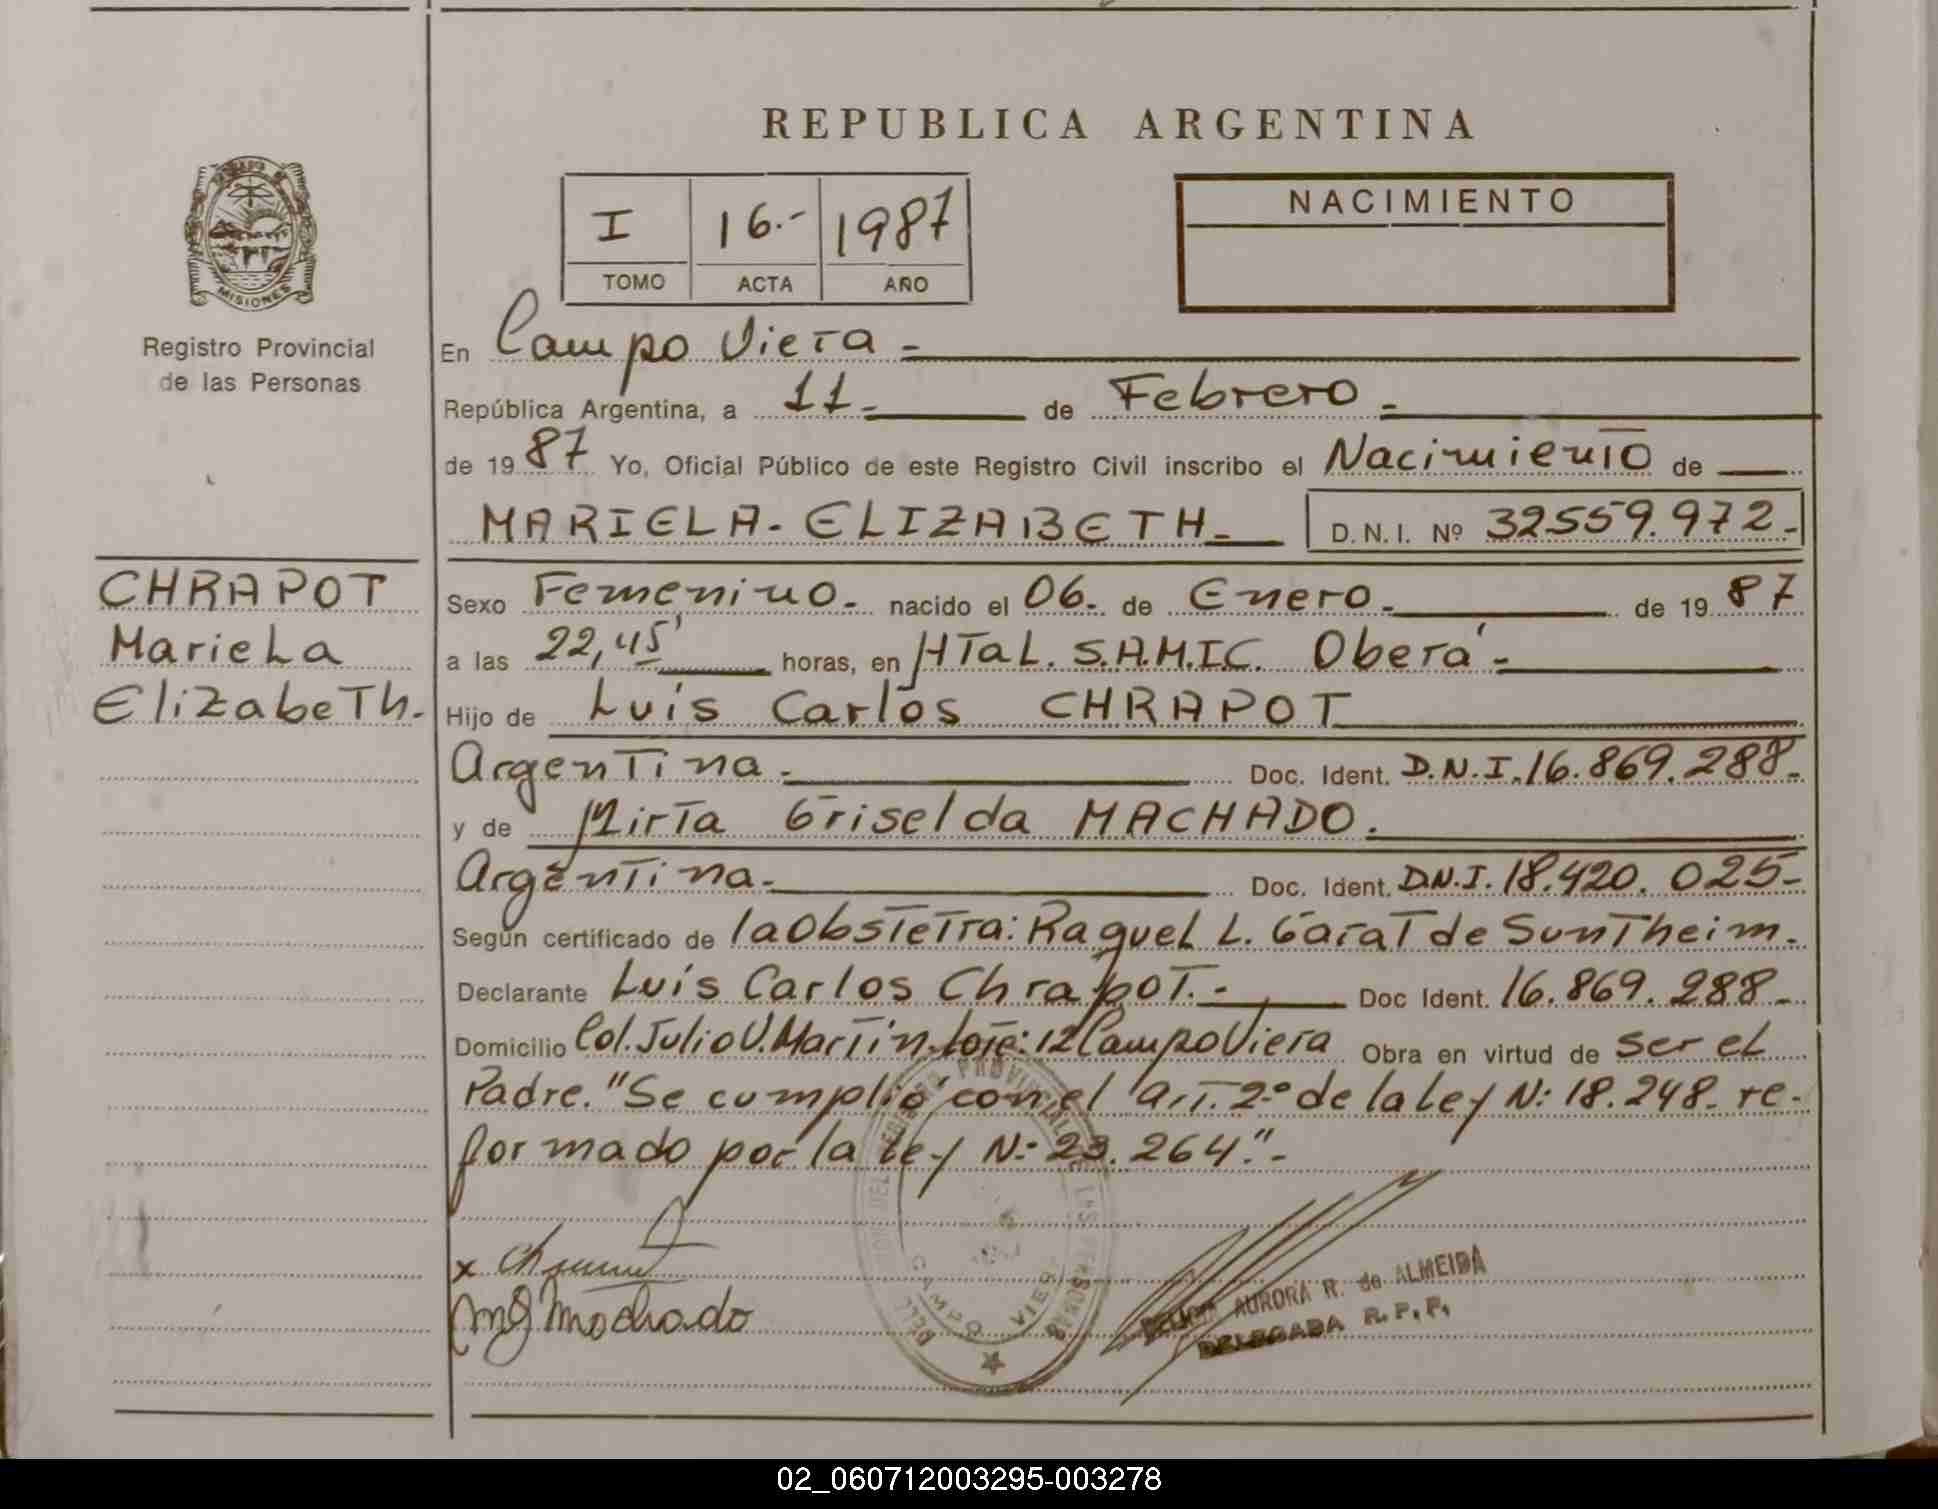 REPUBLICA ARGENTINA
I 16.- 1987
TOMO ACTA AÑO
NACIMIENTO
MISIONES
Registro Provincial
de las Personas
CHRAPOT
Mariela
Elizabeth.-
En Campo Viera -
República Argentina, a 11.- de Febrero.-
de 1987 Yo, Oficial Público de este Registro Civil inscribo el Nacimiento de
MARIELA-ELIZABETH.- D.N.I. Nº 32559.972.-
Sexo Femenino.- nacido el 06.- de Enero.- de 1987
a las 22,45' horas, en HTaL. S.A.M.I.C. Oberá.-
Hijo de Luis Carlos CHRAPOT
Argentina.- Doc. Ident. D.N.I. 16.869.288.-
y de Mirta Griselda MACHADO.
Argentina.- Doc. Ident. D.N.I. 18.420.025-
Según certificado de la Obstetra: Raquel L. Garat de Suntheim.
Declarante Luis Carlos Chrapot.- Doc Ident. 16.869.288.-
Domicilio Col. Julio U. Martin. Lote: 12 Campo Viera Obra en virtud de ser el
Padre. "Se cumplió con el art. 2º de la Ley N: 18.248. re-
formado por la Ley N: 23.264".-
x
MG Machado
CAMPO VIERA
AURORA R. de ALMEIDA
DELEGADA R.P.P.
02_060712003295-003278